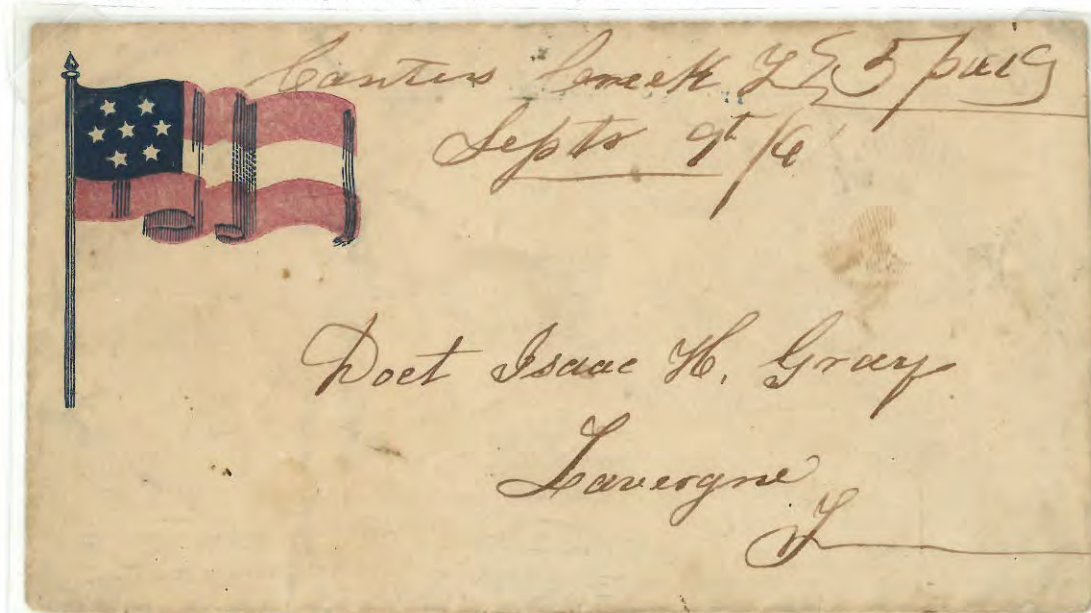 Carters Creek T 5 paid
Septr 9t /6
Doct Isaac H. Gray
Lavergne
T